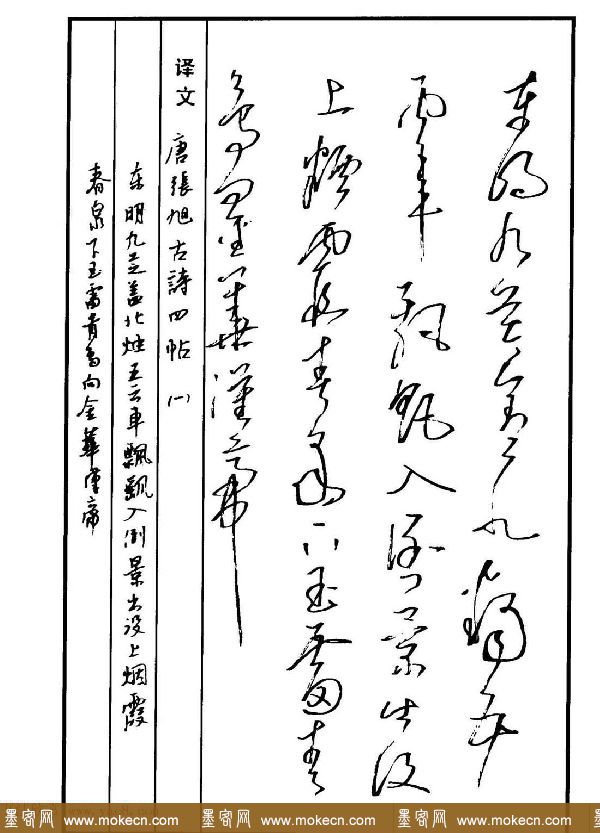 東明九芝蓋北燭五
雲車飄飖入倒景出没
上煙霞春泉下玉霤青
鳥向金華漢帝
译文 唐張旭古詩四帖（一）
东明九芝盖北烛五云車飄飖入倒景出没上烟霞
春泉下玉霤青鸟向金華漢帝
墨客网 www.mokecn.com 墨客网 www.mokecn.com 墨客网 www.mokecn.com